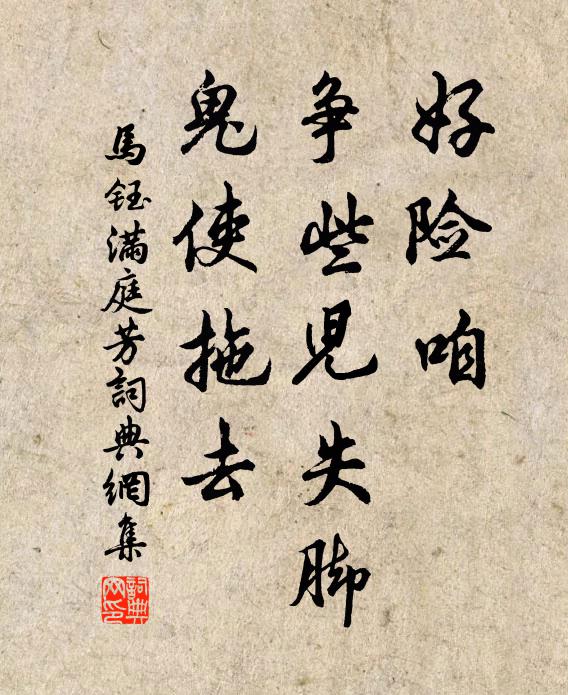 好险咱
争些兒失脚
鬼使拖去
馬鈺滿庭芳詞典網集
詞典网印